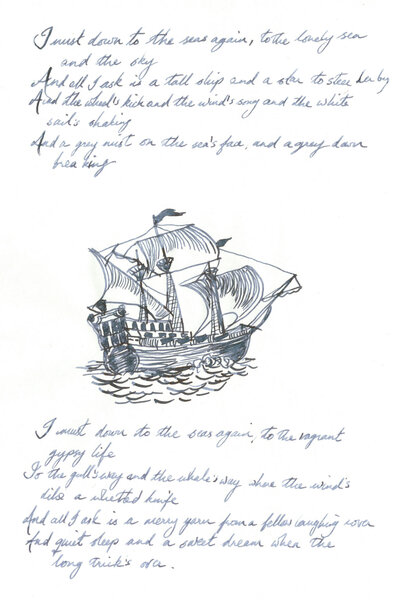 I must down to the seas again, to the lonely sea
and the sky
And all I ask is a tall ship and a star to steer her by
And the wheel's kick and the wind's song and the white
sail's shaking
And a grey mist on the sea's face, and a grey dawn
breaking
I must down to the seas again, to the vagrant
gypsy life
To the gull's way and the whale's way where the wind's
like a whetted knife
And all I ask is a merry yarn from a fellow laughing rover
And quiet sleep and a sweet dream when the
long trick's over.